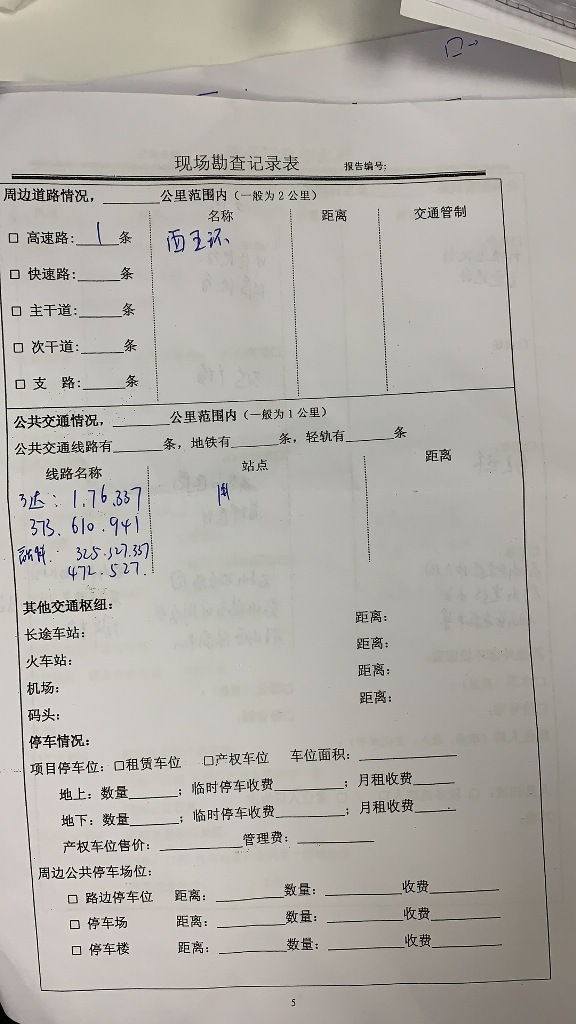 现场勘查记录表 报告编号:
周边道路情况，_______公里范围内（一般为2公里）
名称 距离 交通管制
□ 高速路:__1__条 西五环
□ 快速路:_____条
□ 主干道:_____条
□ 次干道:_____条
□ 支 路:_____条
公共交通情况，_______公里范围内（一般为1公里）
公共交通线路有_____条，地铁有_____条，轻轨有_____条
线路名称 站点 距离
: 1.76.337
373. 610. 941
: 325.527.357
472.527.
其他交通枢组:
长途车站: 距离:
火车站: 距离:
机场: 距离:
码头: 距离:
停车情况:
项目停车位: □租赁车位 □产权车位 车位面积: _________
地上: 数量_____; 临时停车收费_______; 月租收费_____
地下: 数量_____; 临时停车收费_______; 月租收费_____.
产权车位售价: ________管理费: ________
周边公共停车场位:
□ 路边停车位 距离: _______数量: _______收费_______
□ 停车场 距离: _______数量: _______收费_______
□ 停车楼 距离: _______数量: _______收费_______
5